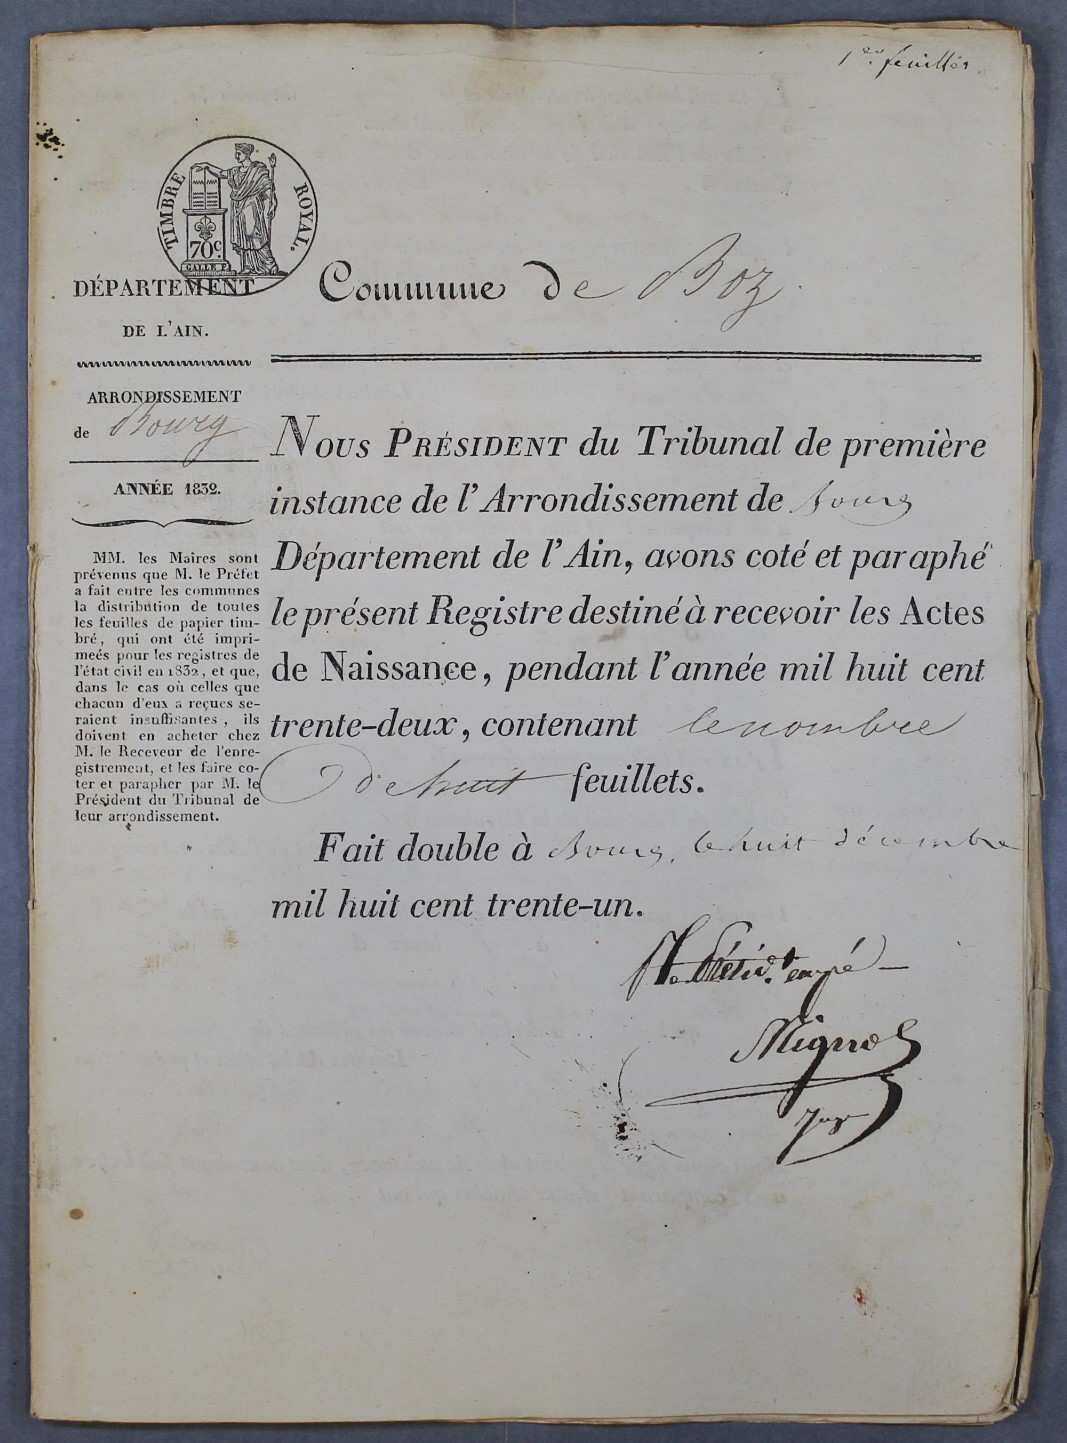 1er feuillet
TIMBRE ROYAL.
70c.
DÉPARTEMENT
DE L'AIN.
Commune de Boz.
ARRONDISSEMENT
de Bourg
ANNÉE 1832.
MM. les Maires sont
prévenus que M. le Préfet
a fait entre les communes
la distribution de toutes
les feuilles de papier tim-
bré, qui ont été impri-
meés pour les registres de
l'état civil en 1832, et que,
dans le cas où celles que
chacun d'eux a reçues se-
raient insuffisantes, ils
doivent en acheter chez
M. le Receveur de l'enre-
gistrement, et les faire co-
ter et parapher par M. le
Président du Tribunal de
leur arrondissement.
NOUS PRÉSIDENT du Tribunal de première
instance de l'Arrondissement de Bourg
Département de l'Ain, avons coté et paraphé
le présent Registre destiné à recevoir les Actes
de Naissance, pendant l'année mil huit cent
trente-deux, contenant le nombre
de huit feuillets.
Fait double à Bourg, le huit décembre
mil huit cent trente-un.
Le Présidt empé
Juge